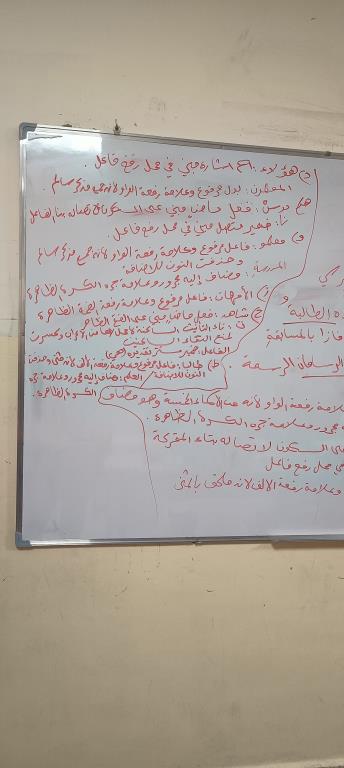 د) هؤلاء: اسم اشارة مبني في محل رفع فاعل.
المعلمون: بدل مرفوع وعلامة رفعه الواو لأنه جمع مذكر سالم
هـ) درسنا: فعل ماضي مبني على السكون لاتصاله بنا الفاعل
نا: ضمير متصل مبني في محل رفع فاعل.
و) معلمو: فاعل مرفوع وعلامة رفعه الواو لأنه جمع مذكر سالم
وحذفت النون للاضافة
المدرسة: مضاف إليه مجرور وعلامة جره الكسرة الظاهرة
ز) الأمهات: فاعل مرفوع وعلامة رفعه الضمة الظاهرة
ح) شاهد: فعل ماضي مبني على الفتح الظاهر
ت: تاء التأنيث الساكنة لا محل لها من الاعراب وكسرت
لمنع التقاء الساكنين
الفاعل: ضمير مستتر تقديره (هي)
ط) طالبا: فاعل مرفوع وعلامة رفعه الألف لأنه مثنى وحذفت
النون للاضافة / العلم: مضاف إليه مجرور وعلامة جره
الكسرة الظاهرة.
الطالبة
فازا بالمسابقة
الرسمة.
علامة رفعه الواو لأنه من الأسماء الخمسة وهو مضاف
مجرور وعلامة جره الكسرة الظاهرة.
على السكون لاتصاله بتاء المتحركة
في محل رفع فاعل
وعلامة رفعه الالف لأنه ملحق بالمثنى